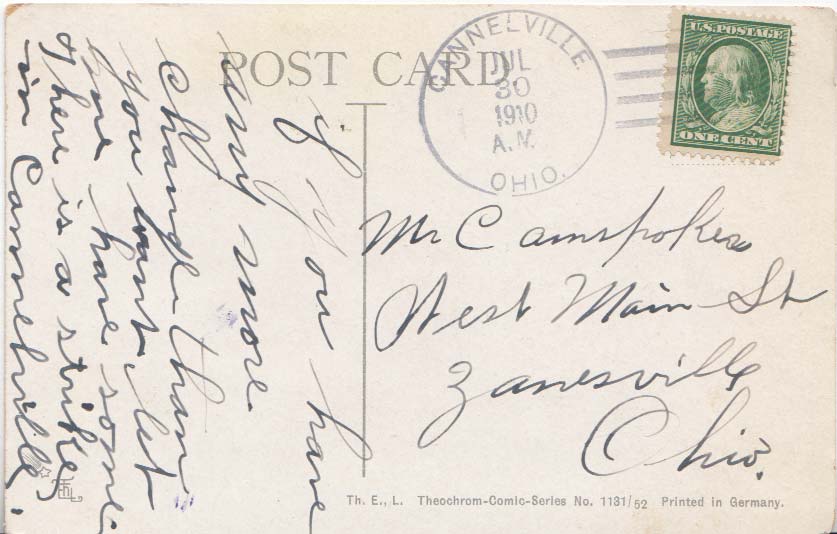 POST CARD
CANNELVILLE
JUL
30
1910
A.M.
OHIO.
U.S. POSTAGE
ONE CENT
if you have
any more
change than
you want let
me have some
there is a strike
in Cannelville.
Mr C
West Main St
Zanesville
Ohio.
Th. E., L. Theochrom-Comic-Series No. 1131/52 Printed in Germany.